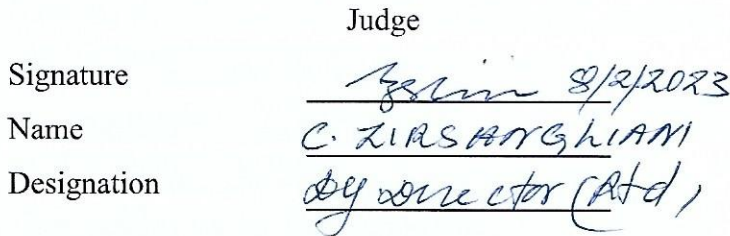 Judge
Signature 8/2/2023
Name C. ZIRSANGLIANI
Designation Dy Director (Rtd)